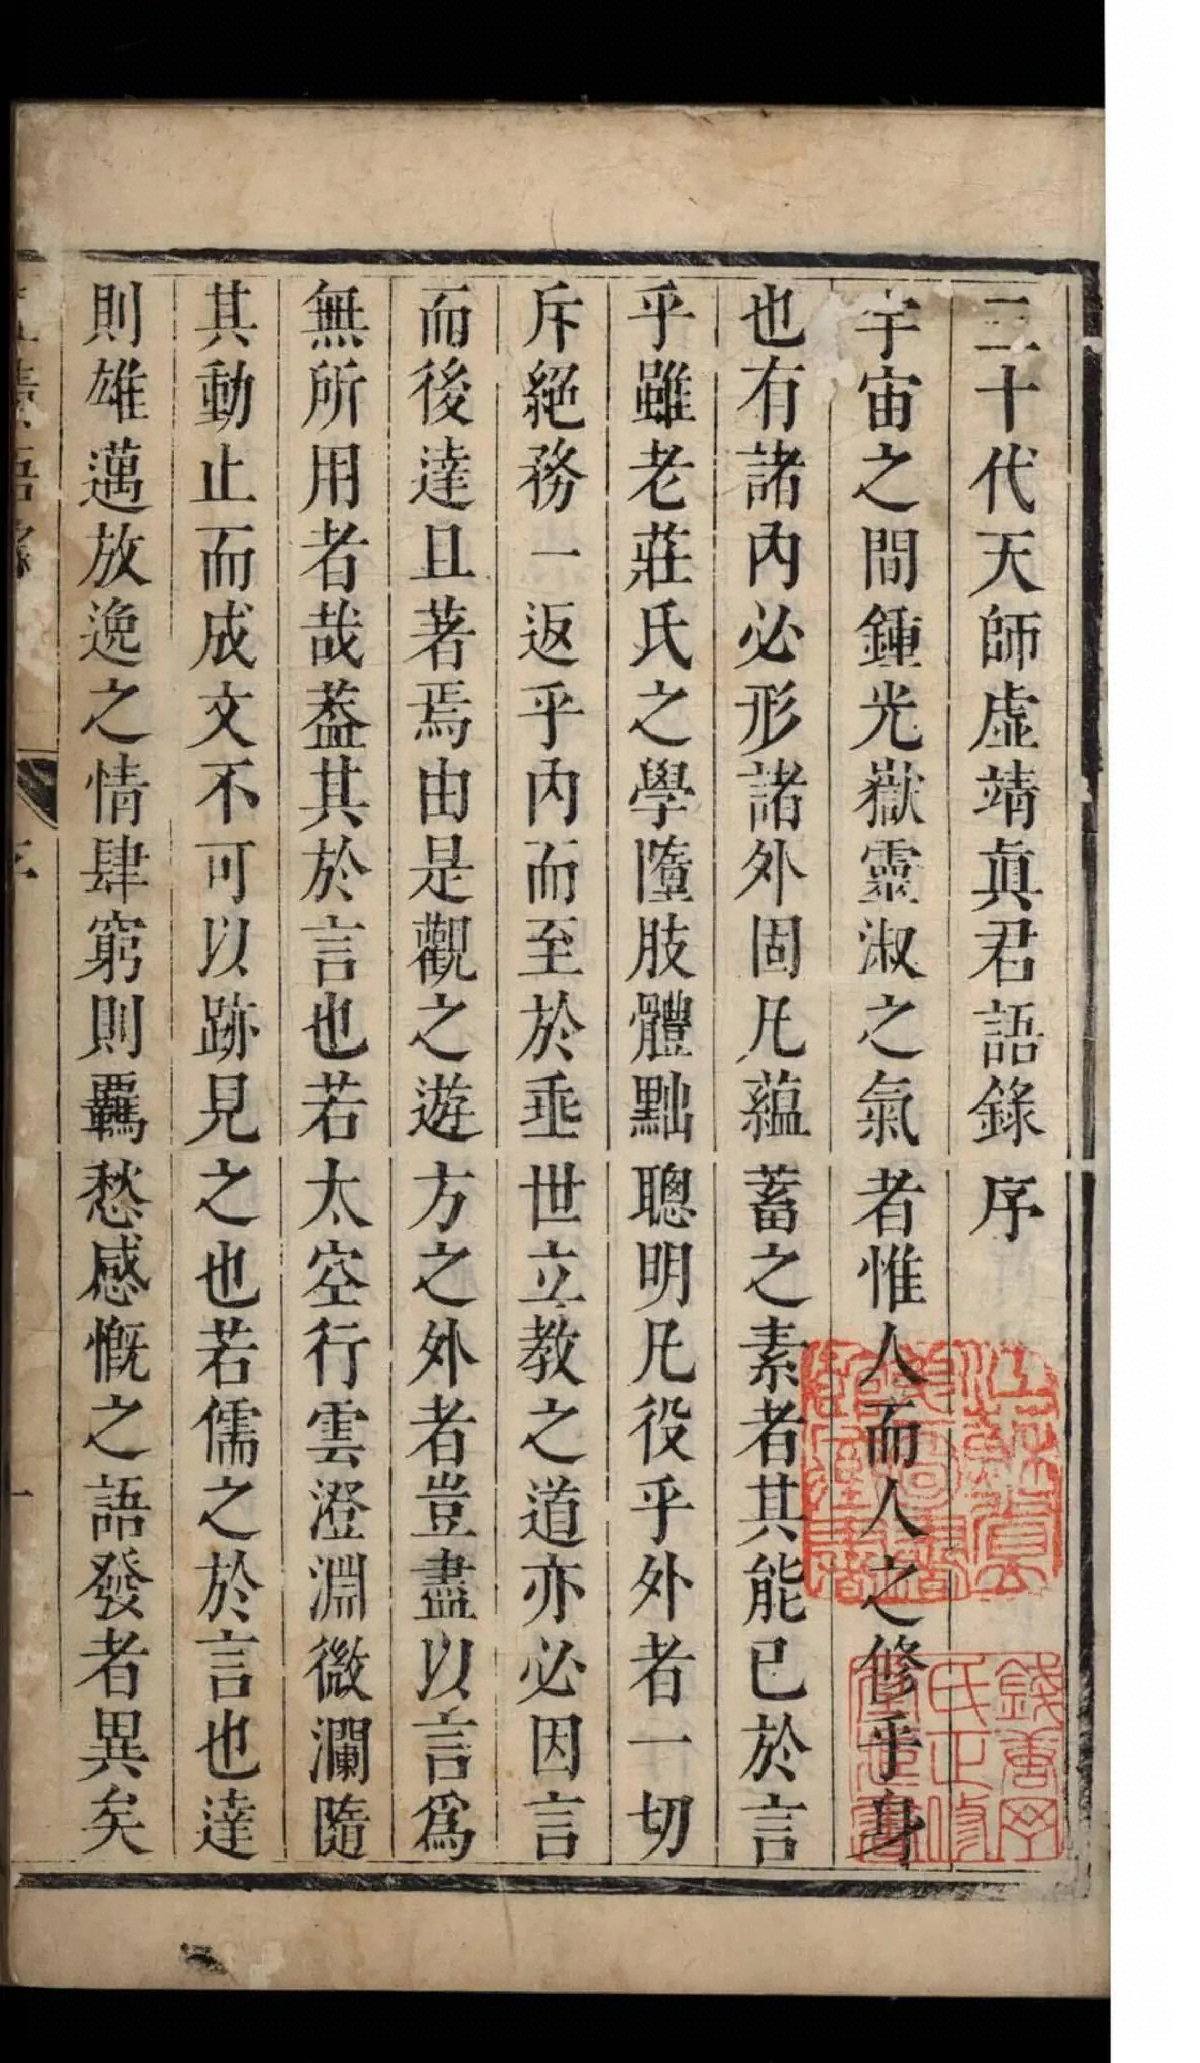 三十代天師虛靖眞君語錄序
宇宙之間鍾光嶽靈淑之氣者惟人而人之修乎身
也有諸內必形諸外固凡蘊蓄之素者其能已於言
乎雖老莊氏之學墮肢體黜聰明凡役乎外者一切
斥絕務一返乎內而至於垂世立教之道亦必因言
而後達且著焉由是觀之遊方之外者豈盡以言爲
無所用者哉葢其於言也若太空行雲澄淵微瀾隨
其動止而成文不可以跡見之也若儒之於言也達
則雄邁放逸之情肆窮則羈愁感慨之語發者異矣
錢唐丙
氏正修
堂藏書